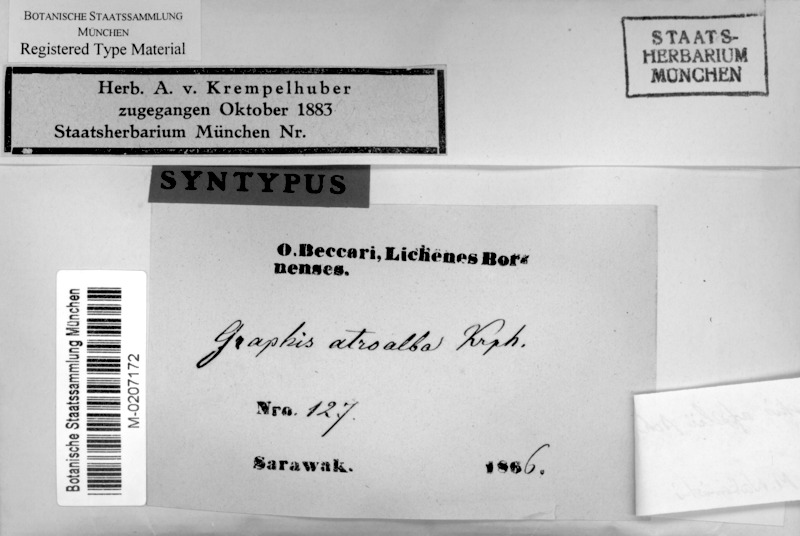 BOTANISCHE STAATSSAMMLUNG
MÜNCHEN
Registered Type Material
STAATS-
HERBARIUM
MÜNCHEN
Herb. A. v. Krempelhuber
zugegangen Oktober 1883
Staatsherbarium München Nr.
SYNTYPUS
O. Beccari, Lichenes Bor-
nenses.
Graphis atroalba Krph.
Nro. 127.
Sarawak. 1866.
Botanische Staatssammlung München
M-0207172